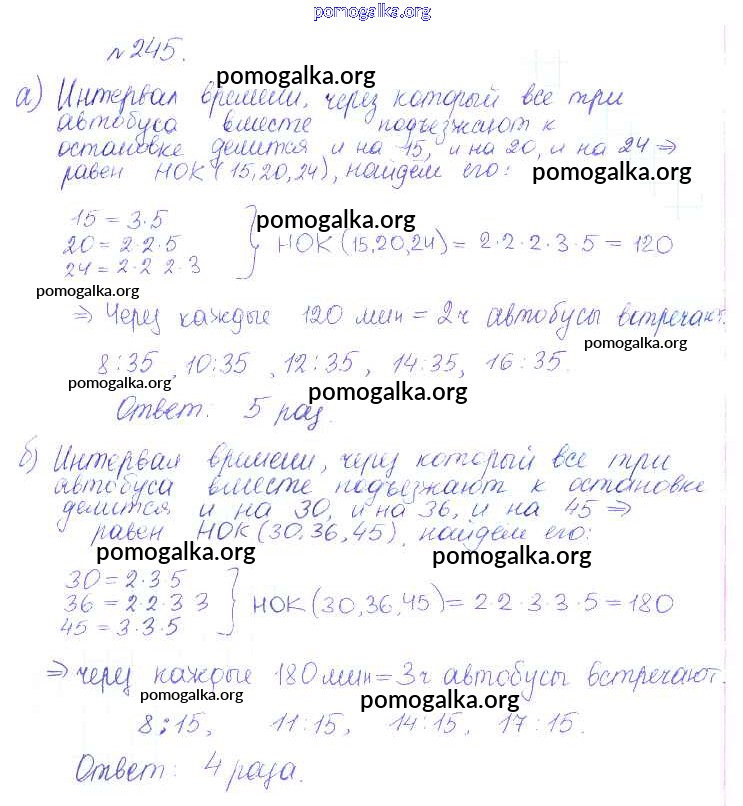 pomogalka.org
№245.
pomogalka.org
а) Интервал времени, через который все три
автобуса вместе подъезжают к
остановке делится и на 15, и на 20, и на 24 ⇒
равен НОК (15,20,24), найдем его: pomogalka.org
15 = 3·5
pomogalka.org
20 = 2·2·5
24 = 2·2 2·3
} НОК (15,20,24) = 2·2·2·3·5 = 120
pomogalka.org
⇒ Через каждые 120 мин = 2ч автобусы встречают.
pomogalka.org
8:35, 10:35, 12:35, 14:35, 16:35.
pomogalka.org
pomogalka.org
Ответ: 5 раз.
б) Интервал времени, через который все три
автобуса вместе подъезжают к остановке
делится и на 30, и на 36, и на 45 ⇒
равен НОК (30.36,45), найдем его:
pomogalka.org
pomogalka.org
30 = 2·3 5
36 = 2·2·3 3
45 = 3·3·5
} НОК (30,36,45) = 2·2·3·3·5 = 180
⇒ через каждые 180 мин = 3ч автобусы встречают.
pomogalka.org
pomogalka.org
8:15, 11:15, 14:15, 17:15.
Ответ: 4 раза.